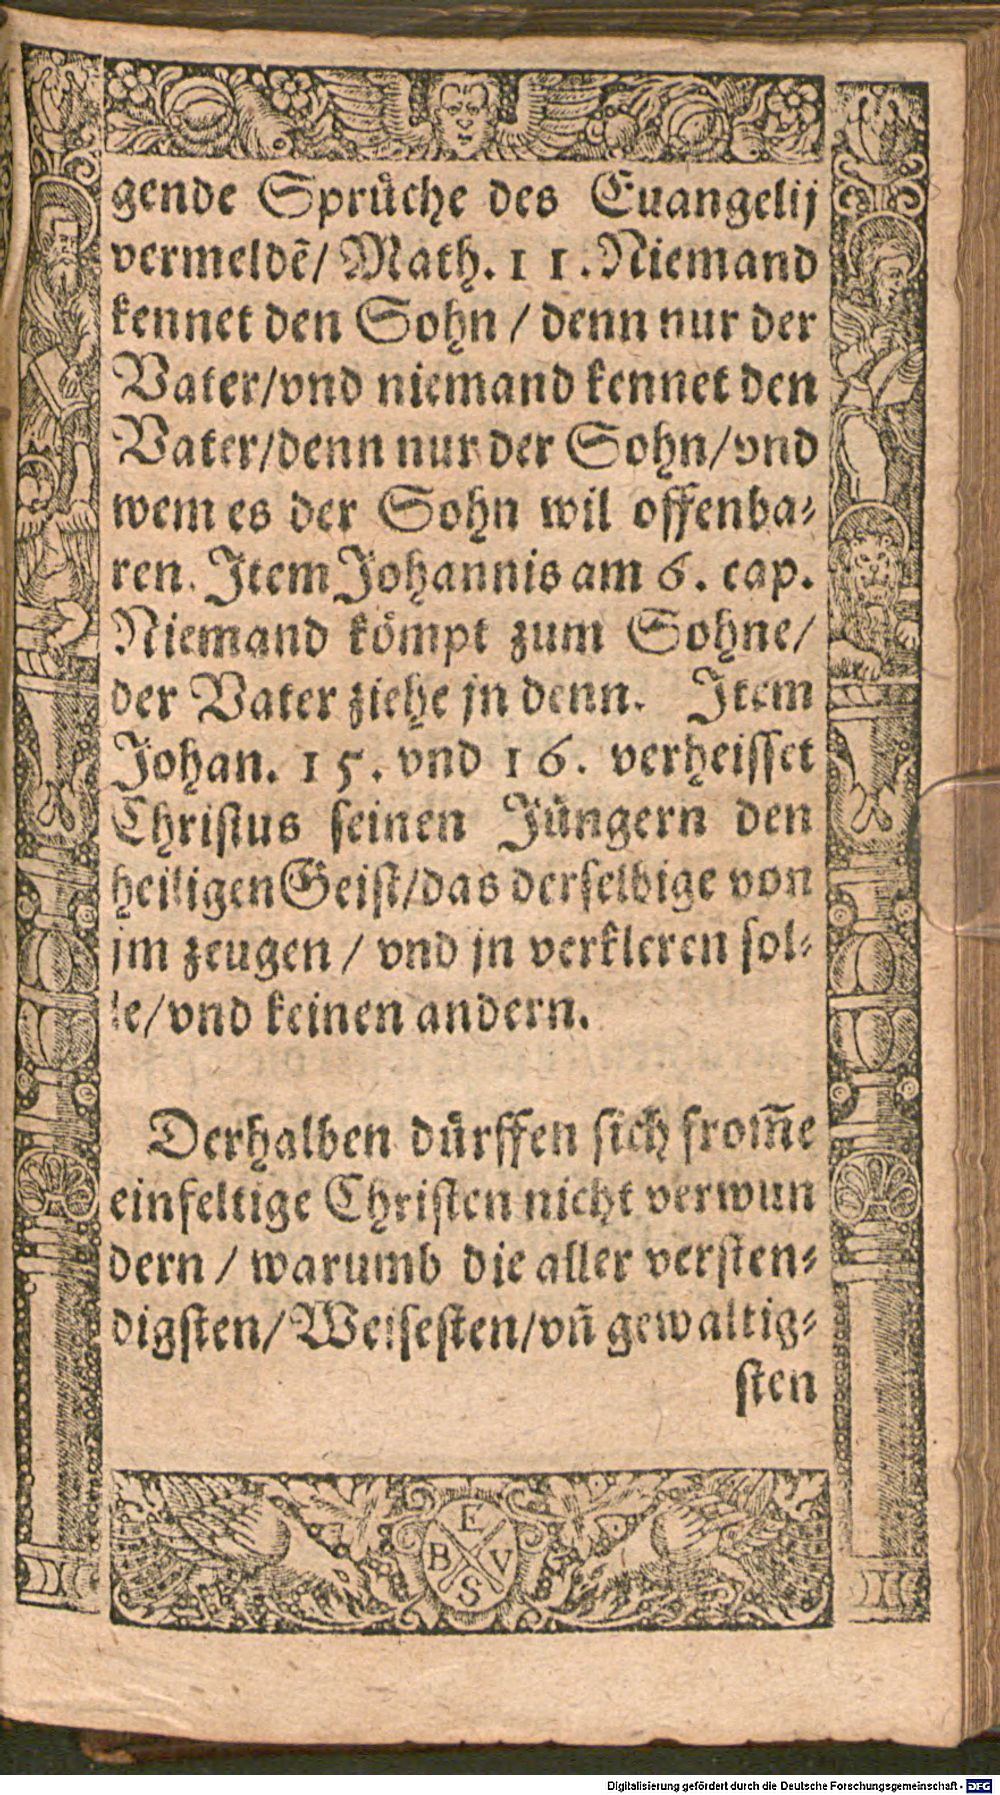 gende Spruͤche des Euangelij
vermeldẽ/ Math. 11. Niemand
kennet den Sohn / denn nur der
Vater/vnd niemand kennet den
Vater/denn nur der Sohn/vnd
wem es der Sohn wil offenba⸗
ren. Item Johannis am 6. cap.
Niemand koͤmpt zum Sohne/
der Vater ziehe jn denn. Item
Johan. 15. vnd 16. verheisset
Christus seinen Juͤngern den
heiligen Geist/das derselbige von
jm zeugen / vnd jn verkleren sol⸗
le/vnd keinen andern.
Derhalben duͤrffen sich from̃e
einfeltige Christen nicht verwun
dern / warumb die aller versten⸗
digsten/ Weisesten/vñ gewaltig⸗
sten
E
B V
S
Digitalisierung gefördert durch die Deutsche Forschungsgemeinschaft - DFG